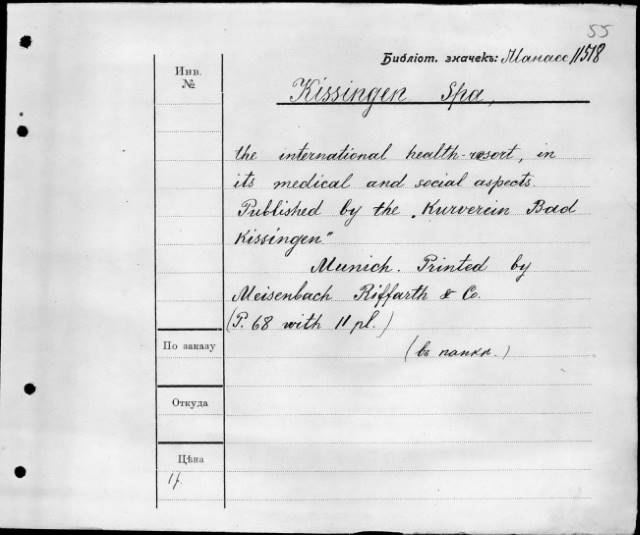 55
Библіот. значекъ: Манасс 11518
Инв.
№
Kissingen Spa,
the international health-resort, in
its medical and social aspects.
Published by the „Kurverein Bad
Kissingen"
Munich. Printed by
Meisenbach Riffarth & Co.
(P. 68 with 11 pl.)
(въ папкѣ.)
По заказу
Откуда
Цѣна